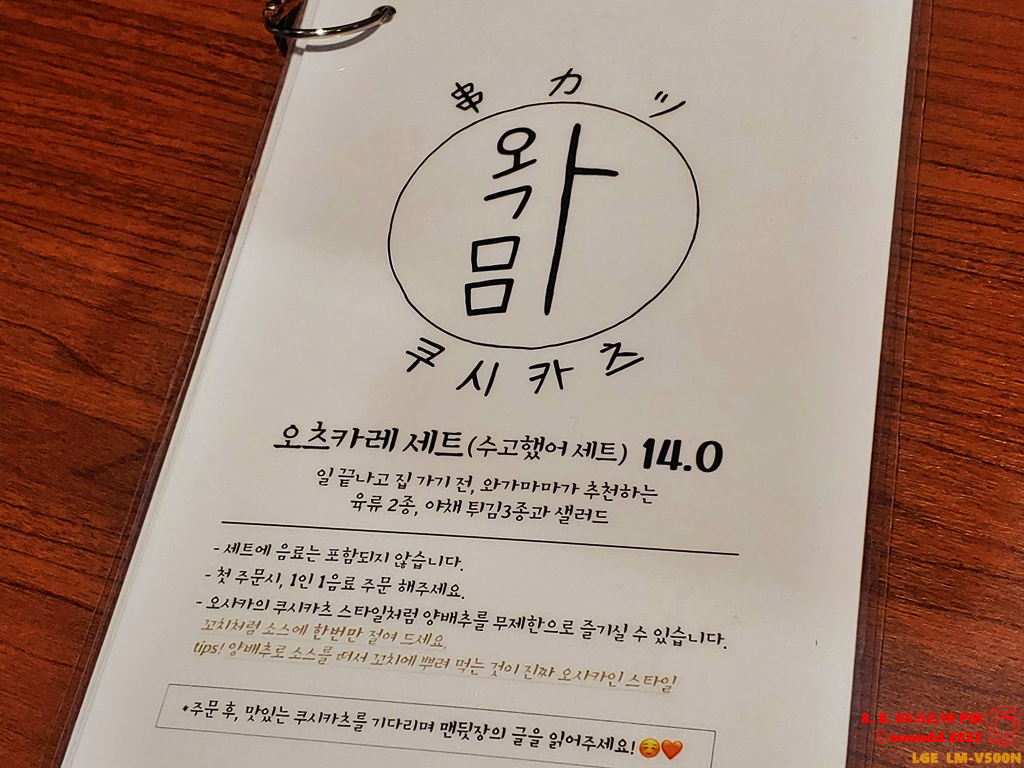 串カツ
쿠시카츠
오츠카레 세트(수고했어 세트) 14.0
일 끝나고 집 가기 전, 와가마마가 추천하는
육류 2종, 야채 튀김3종과 샐러드
- 세트에 음료는 포함되지 않습니다.
- 첫 주문시, 1인 1음료 주문 해주세요.
- 오사카의 쿠시카츠 스타일처럼 양배추를 무제한으로 즐기실 수 있습니다.
꼬치처럼 소스에 한번만 절여 드세요.
tips! 양배추로 소스를 떠서 꼬치에 뿌려 먹는 것이 진짜 오사카인 스타일
*주문 후, 맛있는 쿠시카츠를 기다리며 맨뒷장의 글을 읽어주세요!😌🧡
LGE LM-V500N